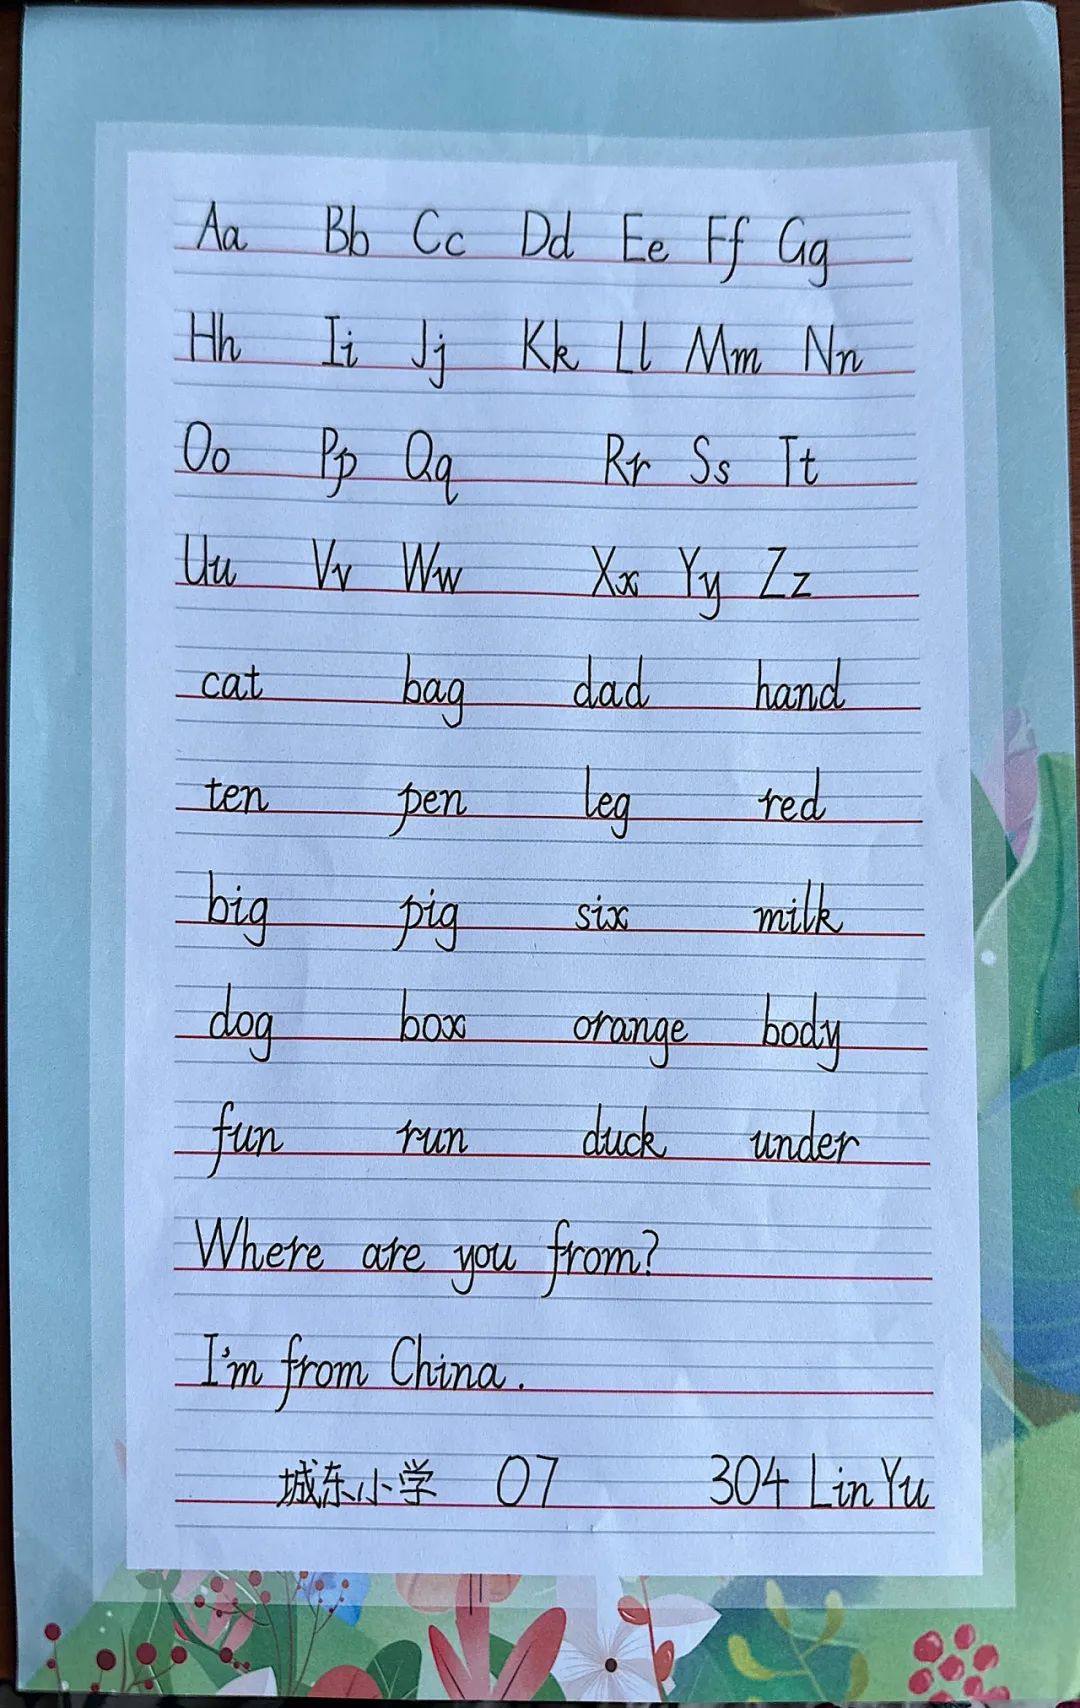 Aa Bb Cc Dd Ee Ff Gg
Hh Ii Jj Kk Ll Mm Nn
Oo Pp Qq Rr Ss Tt
Uu Vv Ww Xx Yy Zz
cat bag dad hand
ten pen leg red
big pig six milk
dog box orange body
fun run duck under
Where are you from?
I'm from China.
城东小学 07 304 Lin Yu